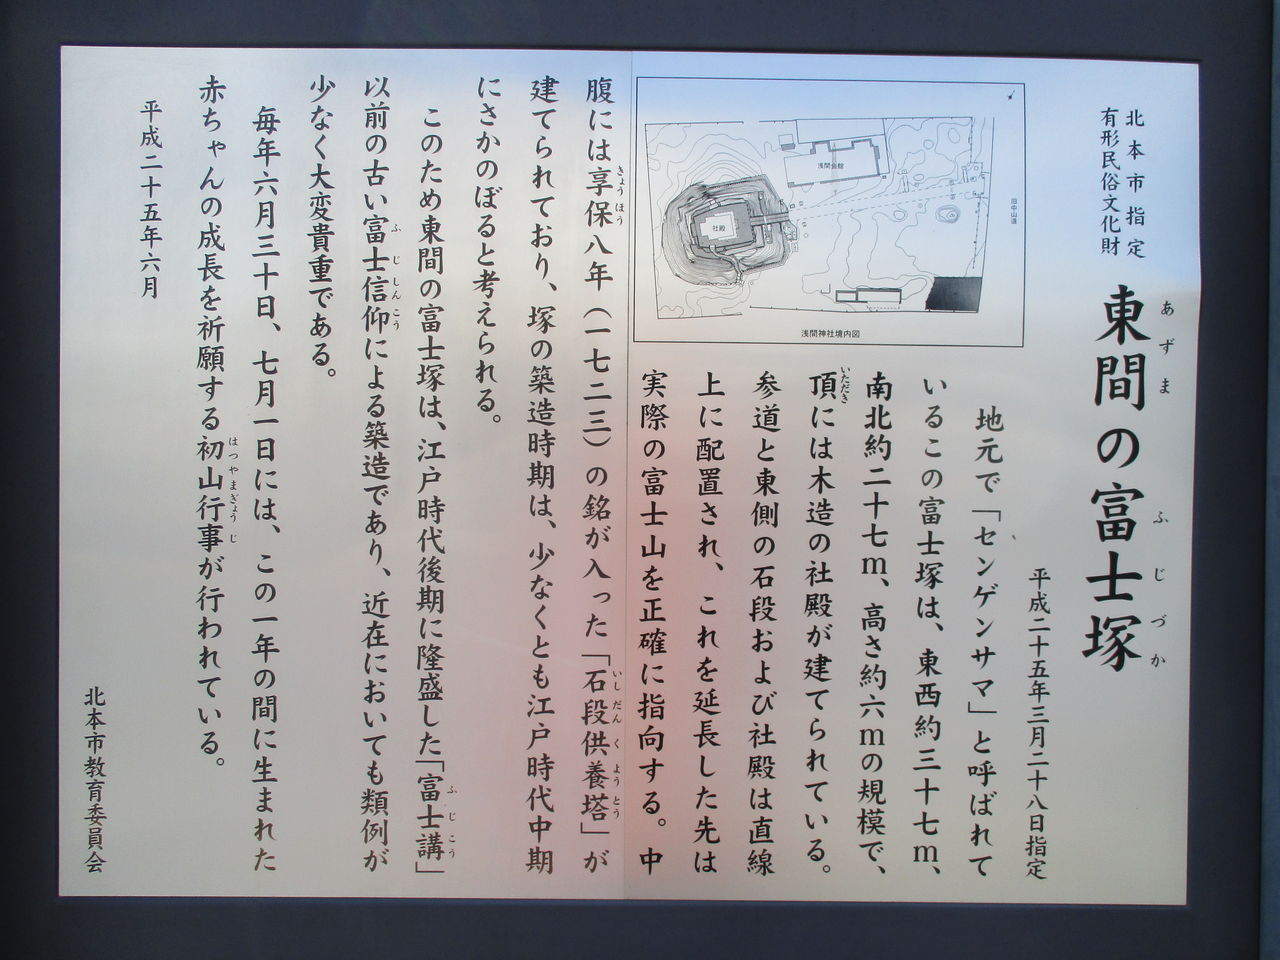 北本市指定
有形民俗文化財
東間の富士塚
あずま
ふじづか
平成二十五年三月二十八日指定
地元で「センゲンサマ」と呼ばれて
いるこの富士塚は、東西約三十七m、
南北約二十七m、高さ約六mの規模で、
頂には木造の社殿が建てられている。
いただき
参道と東側の石段および社殿は直線
上に配置され、これを延長した先は
実際の富士山を正確に指向する。中
腹には享保八年（一七二三）の銘が入った「石段供養塔」が
きょうほう
いしだんくようとう
建てられており、塚の築造時期は、少なくとも江戸時代中期
にさかのぼると考えられる。
このため東間の富士塚は、江戸時代後期に隆盛した「富士講」
ふじこう
以前の古い富士信仰による築造であり、近在においても類例が
ふじしんこう
少なく大変貴重である。
毎年六月三十日、七月一日には、この一年の間に生まれた
赤ちゃんの成長を祈願する初山行事が行われている。
はつやまぎょうじ
平成二十五年六月
北本市教育委員会
浅間会館
社殿
旧中山道
浅間神社境内図